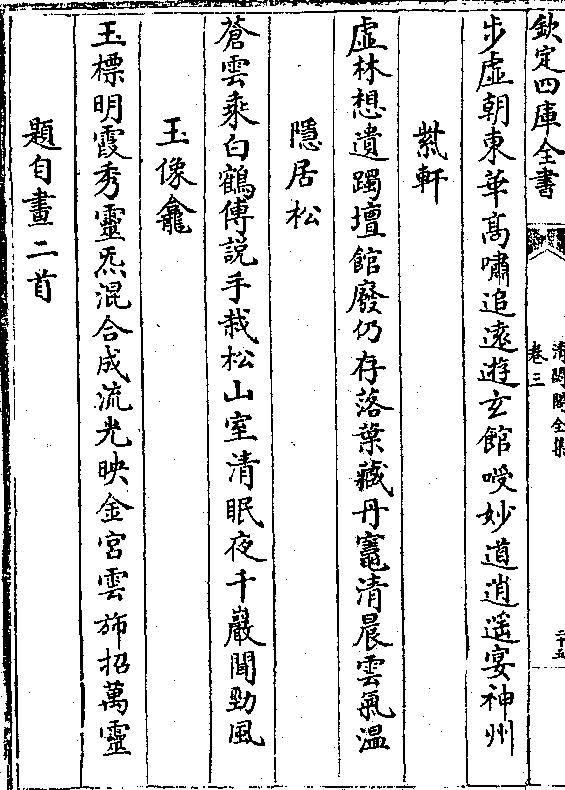 欽定四庫全書
清閟閣全集
卷三
二十五
步虛朝東華髙嘯追逺遊玄館妙道逍遥宴神州
軒
虛林想遺躅壇館廢仍存落葉藏丹竈清晨雲氣溫
隱居松
蒼雲乘白鶴傳説手栽松山室清眠夜千巖聞勁風
玉像龕
玉標明霞秀靈炁混合成流光映金宮雲旆招萬靈
題自畫二首